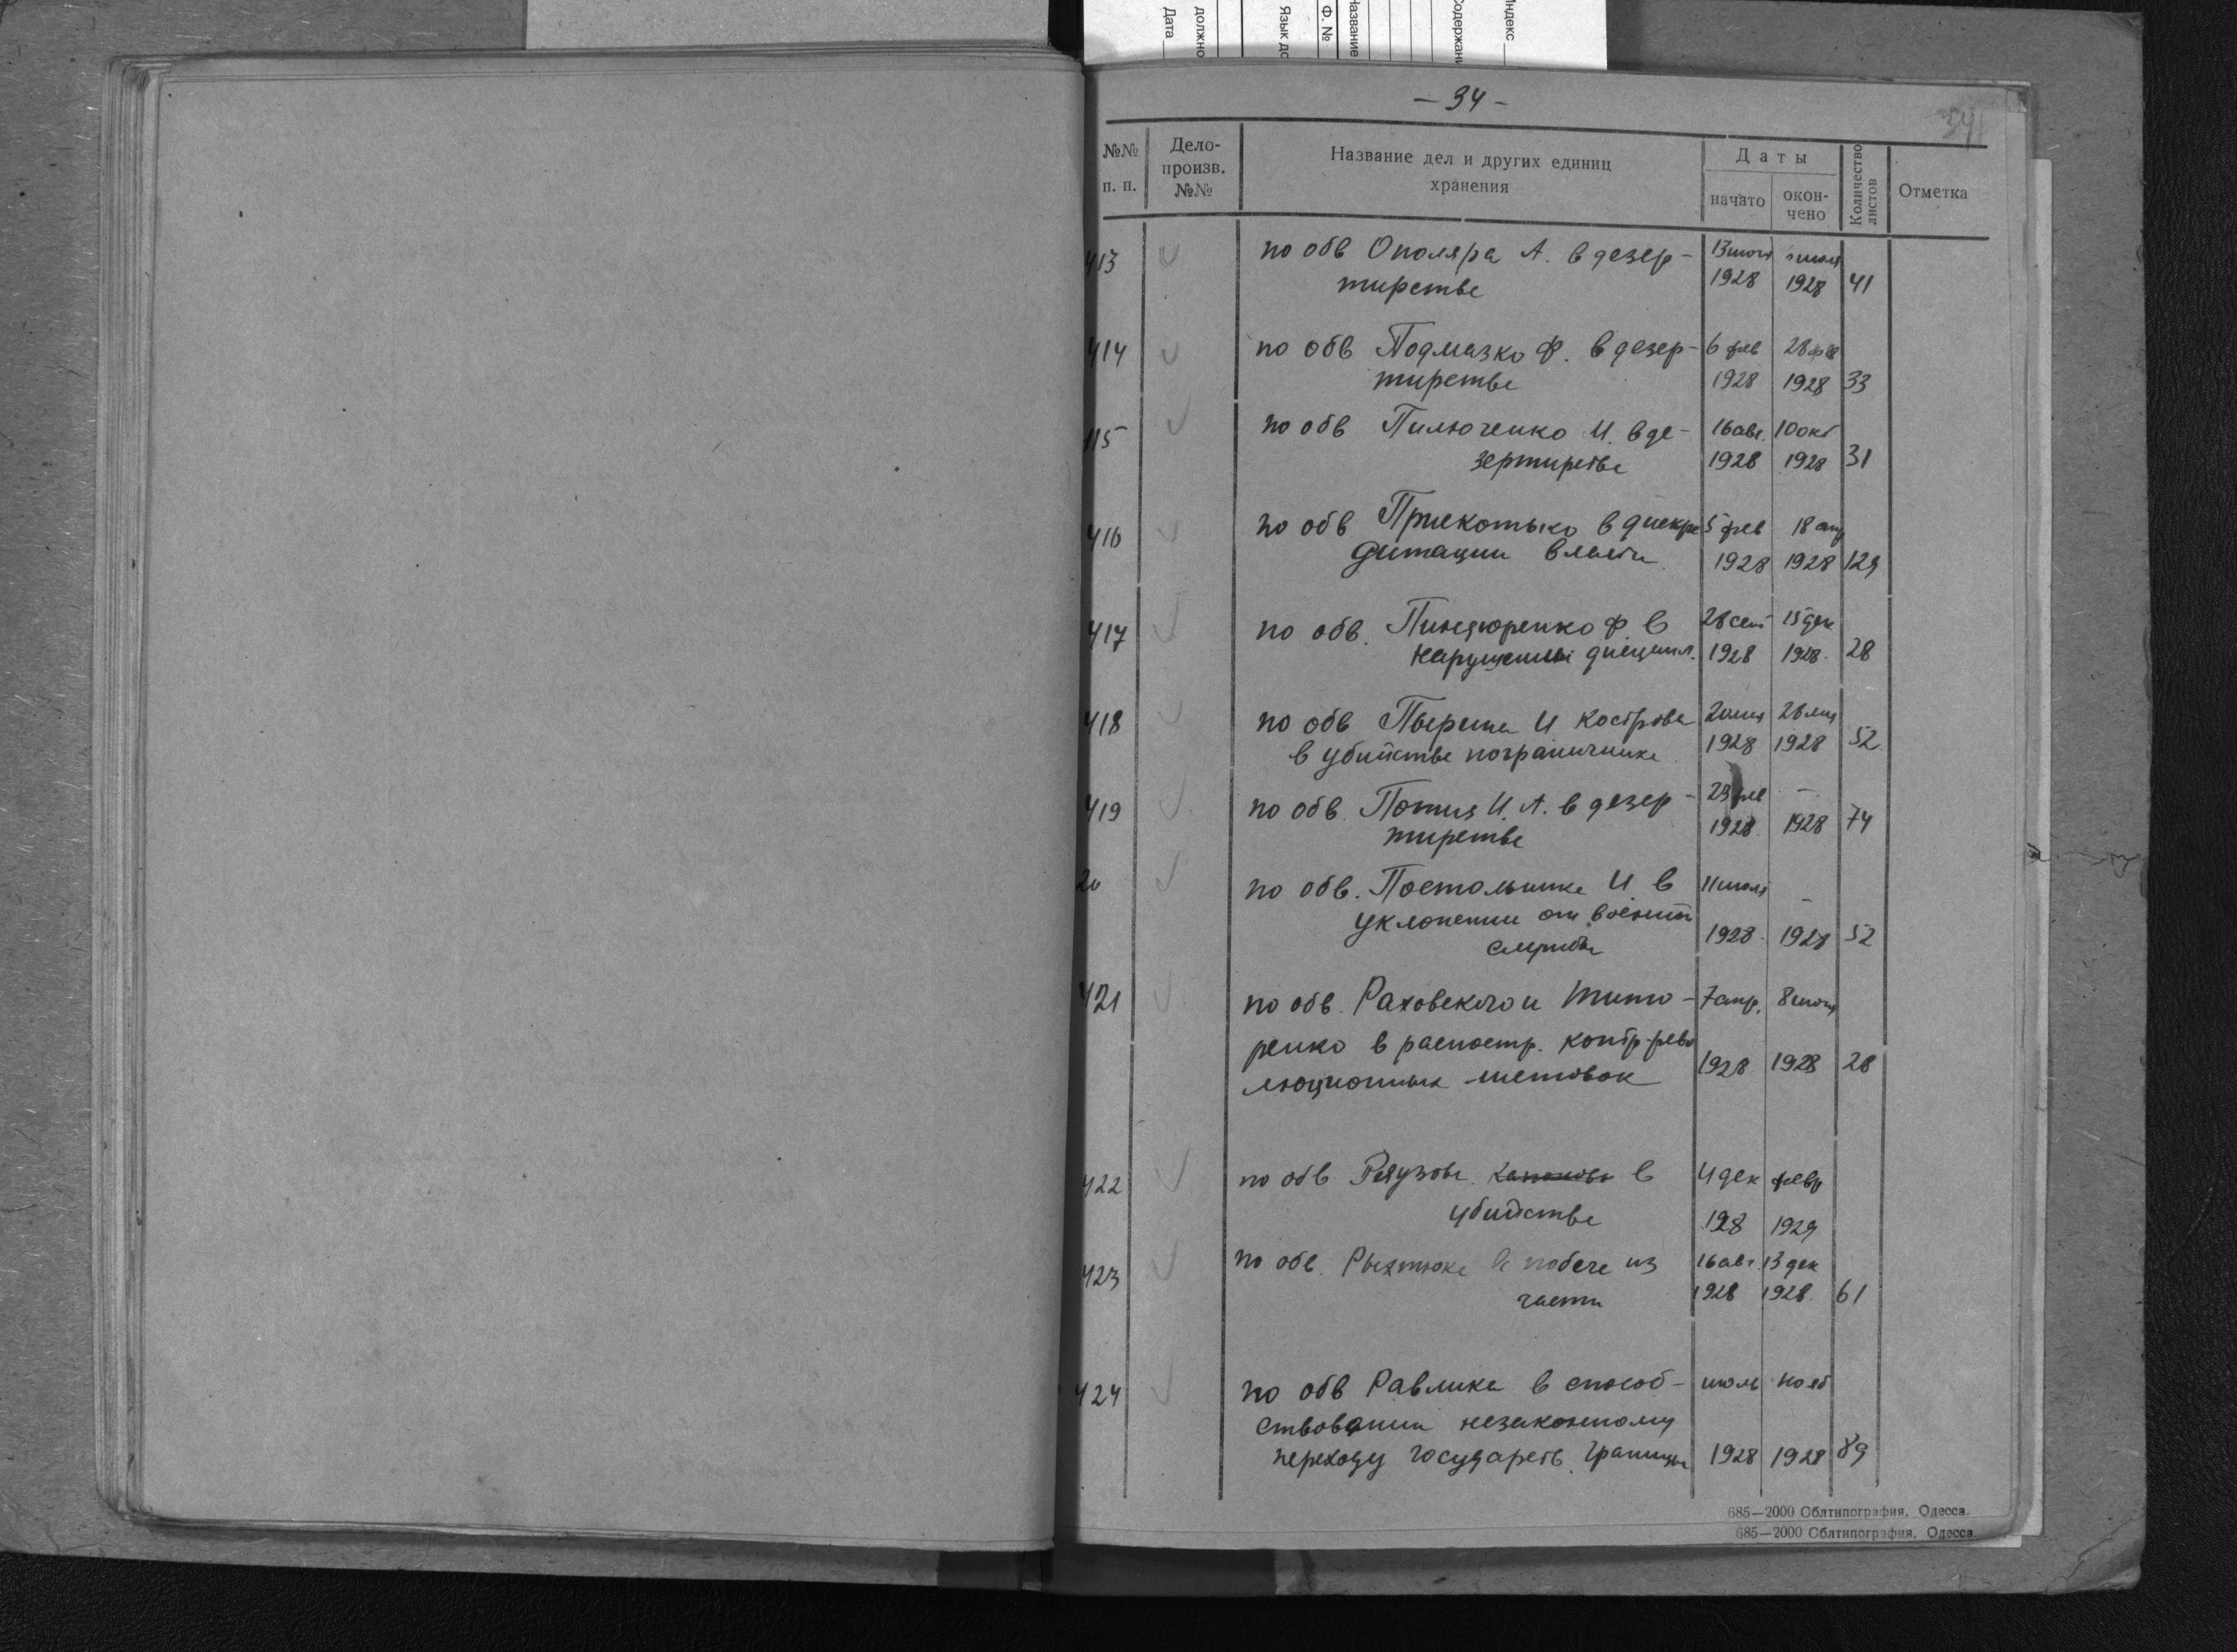 Дата
должно
Язык до
Ф. №
Название
Содержани
Индекс
– 34 –
34
№№ п. п.
Дело-произв. №№
Название дел и других единиц хранения
Даты
начато
окон-чено
Количество листов
Отметка
413 по обв Ополяра А. в дезер- 13 июня июля
тирстве 1928 1928 41
414 по обв Подмазко Ф. в дезер- 6 фев 28 фев
тирстве 1928 1928 33
115 по обв Пилюченко И. в де- 16 авг. 10 окт
зертирстве 1928 1928 31
416 по обв Прискотько в дискре 5 фев 18 апр
дитации власти 1928 1928 129
417 по обв. Пиндюренко Ф. в 28 сент 15 дек
нарушении дисципл. 1928 1928. 28
418 по обв Пырина и Кострова 28 мая
в убийстве пограничника 1928 1928 52
419 по обв. Потия И. А. в дезер- 23 фев –
тирстве 1928. 1928 74
20 по обв. Постольника И в 11 июля
уклонении от военной –
службы 1928. 1928 52
421 по обв. Раховского и Тито- 7 апр. 8 июня
ренко в распостр. контр-рево
люционных листовок 1928 1928 28
422 по обв Реяузова в 4 дек февр
убийстве 1928 1929
423 по обв. Рыхтюка в побеге из 16 авг. 13 дек
части 1928 1928. 61
424 по обв Равлика в способ- июль нояб
ствовании незаконному
переходу государств. границы 1928 1928 89
685—2000 Облтипография, Одесса.
685—2000 Облтипография, Одесса